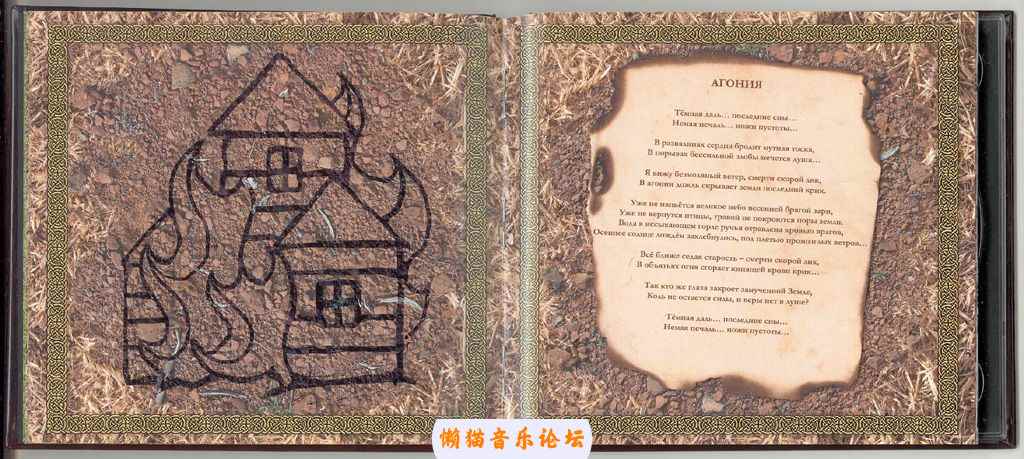 АГОНИЯ
Тёмная даль... последние сны...
Немая печаль... ножи пустоты...
В развалинах сердца бродит мутная тоска,
В порывах бессильной злобы мечется душа...
Я вижу безмолвный ветер, смерти скорой лик,
В агонии дождь скрывает земли последний крик.
Уже не напьётся великое небо весенней брагой зари,
Уже не вернутся птицы, травой не покроются поры земли.
Вода в иссыхающем горле ручья отравлена кровью врагов,
Осеннее солнце дождём захлебнулось, под плетью промозглых ветров...
Всё ближе седая старость – смерти скорой лик,
В объятьях огня сгорает кипящей крови крик...
Так кто же глаза закроет замученной Земле,
Коль не остается силы, и веры нет в душе?
Тёмная даль... последние сны...
Немая печаль... ножи пустоты...
懒猫音乐论坛